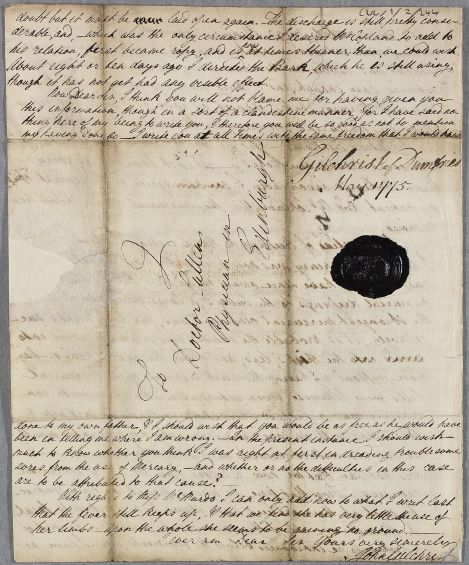 CUL/1/2/244
doubt but it must be laid open again. The discharge is still pretty consi-
derable, and, which was the only circumstance I desired Mr Copland to add to
his relation, at first became ropy, and is thinner, than we could wish
About eight or ten days ago I directed the Bark, which he is still using,
though it has not yet had any visible effect.
Now Dear Sir, I think you will not blame me for having given you
this information, though in a sort of a clandestine manner, for I have said no-
thing here of my being to write you, & therefore you will be so good as not to mention
my having done so — I write you at all times with the same freedom that I would have
Gilchrist of Dumfries
May 1775.
To
Doctor Cullen
Physician in
Edinburgh
done to my own father, & I should wish that you would be as free as he would have
been in telling me where I am wrong. — In the present instance I should wish
much to know whether you think I was right at first in dreading troublesome
sores from the use of Mercury, — and whether or no the difficulties in this case
are to be attributed to that cause?
With regard to Miss I can only add now to what I writ last
that the fever still keeps up, & that we find she has very little the use of
her limbs — upon the whole she seems to be gaining no ground. —
I ever am Dear Sir Yours very sincerely
John Gilchrist